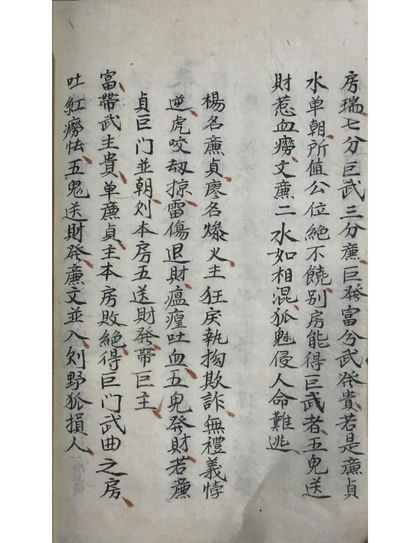 房瑞七分巨武三分廉巨發富兮武發貴若是廉貞
水单朝所值公位絶不饒别房能得巨武者五鬼送
財惹血癆文廉二水如相混狐魅侵人命難逃
楊名廉貞廖名燥火主狂戾執拗欺詐無禮義悖
逆虎咬刼掠雷傷退財瘟瘟吐血五鬼發財若廉
貞巨門並朝则本房五送財發帶巨主
富帶武主貴单廉貞主本房敗絶得巨門武曲之房
吐紅癆怯五鬼送財發廉文並入则野狐損人